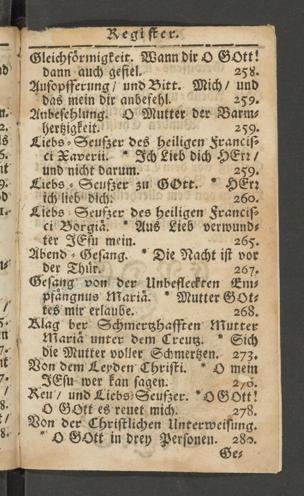 Register.
Gleichförmigkeit. Wann dir O GOtt!
dann auch gefiel. 258.
Aufopfferung / und Bitt. Mich / und
das mein dir anbefehl. 259.
Anbefehlung. O Mutter der Barm-
hertzigkeit. 259.
Liebs-Seufzer des heiligen Francis-
ci Xaverii. * Ich Lieb dich HErr /
und nicht darum. 259.
Liebs-Seufzer zu GOtt. * HErr
ich lieb dich. 260.
Liebs-Seufzer des heiligen Francis-
ci Borgiä. * Aus Lieb verwund-
ter JEsu mein. 265.
Abend-Gesang. * Die Nacht ist vor
der Thür. 267.
Gesang von der Unbefleckten Em-
pfängnus Mariä. * Mutter GOt-
tes mir erlaube. 268.
Klag der Schmertzhafften Mutter
Mariä unter dem Creutz. * Sich
die Mutter voller Schmertzen. 273.
Von dem Leyden Christi. * O mein
JEsu wer kan sagen. 276.
Reu / und Liebs-Seufzer. * O GOtt!
O GOtt es reuet mich. 278.
Von der Christlichen Unterweisung.
* O GOtt in drey Personen. 280.
Ge-